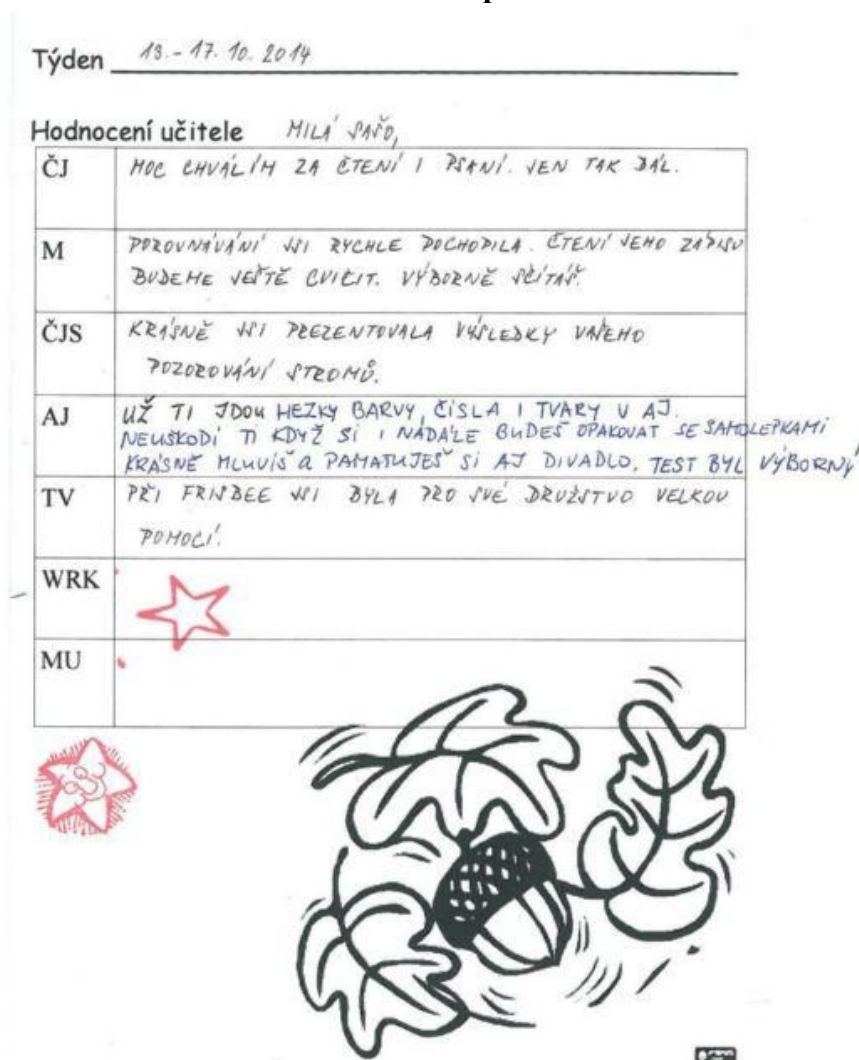 Týden 13.-17. 10. 2014
Hodnocení učitele MILÁ SAŠO,
ČJ MOC CHVÁLÍM ZA ČTENÍ I PSANÍ. JEN TAK DÁL.
M POROVNÁVÁNÍ JSI RYCHLE POCHOPILA. ČTENÍ JEHO ZÁPISU
BUDEME JEŠTĚ CVIČIT. VÝBORNĚ SČÍTÁŠ.
ČJS KRÁSNĚ JSI PREZENTOVALA VÝSLEDKY VAŠEHO
POZOROVÁNÍ STROMŮ.
AJ UŽ TI JDOU HEZKY BARVY, ČÍSLA I TVARY V AJ.
NEUŠKODÍ TI KDYŽ SI I NADÁLE BUDEŠ OPAKOVAT SE SAMOLEPKAMI
KRÁSNĚ MLUVÍŠ a PAMATUJEŠ SI AJ DIVADLO. TEST BYL VÝBORNÝ
TV PŘI FRISBEE JSI BYLA PRO SVÉ DRUŽSTVO VELKOU
POMOCÍ.
WRK
MU